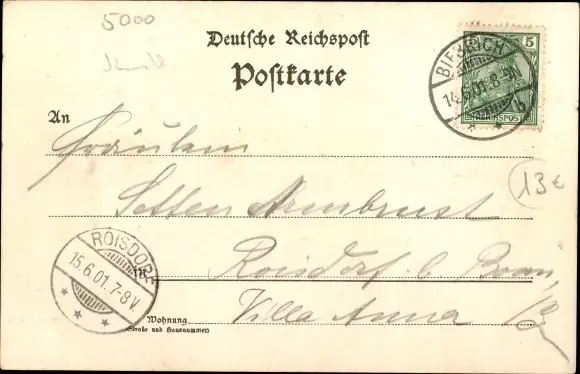 5000
Deutsche Reichspost
Postkarte
BIEBRICH
14.6.01.8-9N
5
REICHSPOST
An
Fräulein
Setten Armbrust
13€
Roisdorf b. Bonn
ROISDORF
15.6.01.7-8V.
in
Villa Anna
Wohnung
(Straße und Hausnummer)